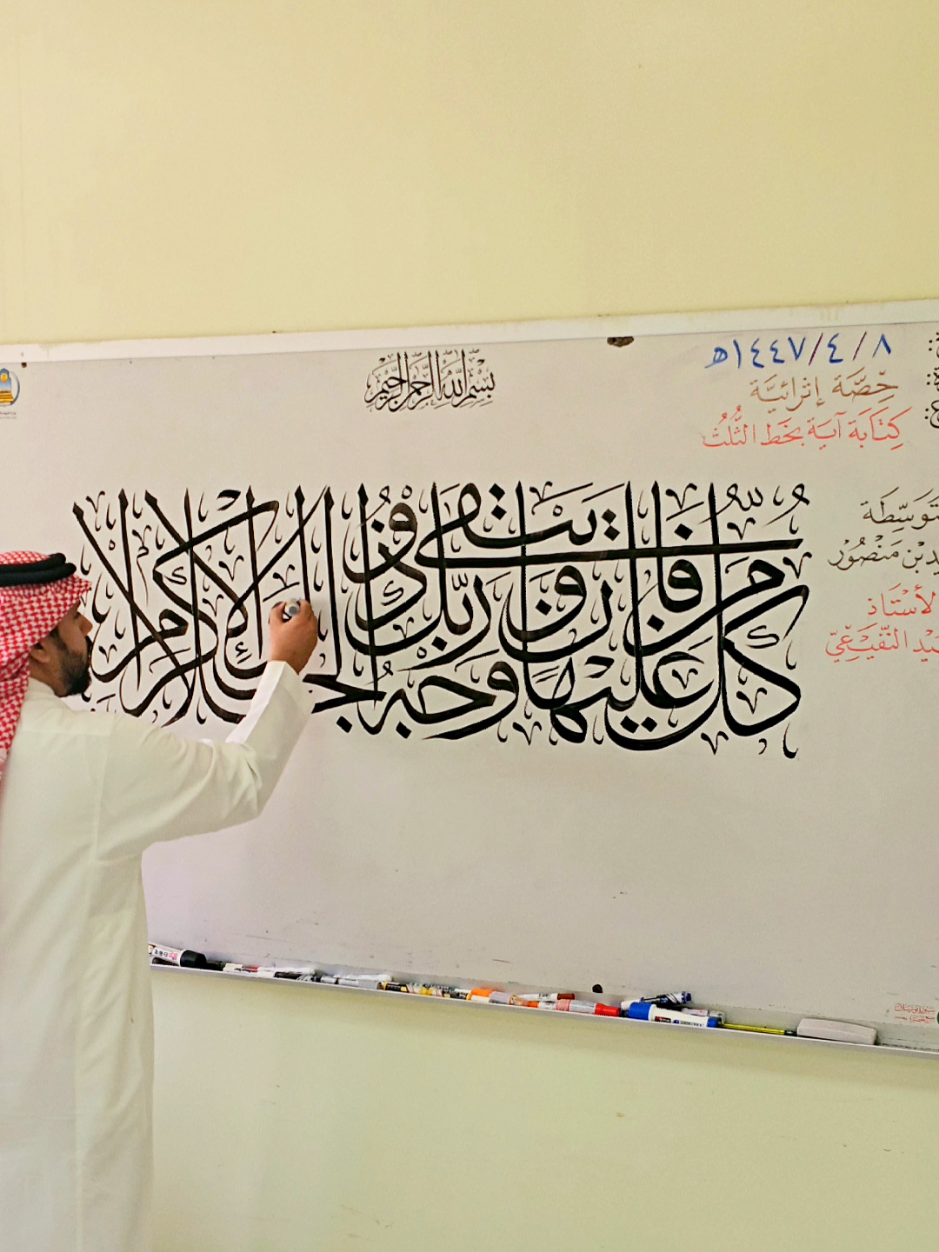 بِسْمِ اللَّهِ الرَّحْمَٰنِ الرَّحِيمِ
٨/٤/١٤٤٧هـ
حِصَّة إثرائيَّة
كِتَابَة آيَة بخَط الثُّلُث
كُلُّ مَنْ عَلَيْهَا فَانٍ وَيَبْقَى وَجْهُ رَبِّكَ ذُو الْجَلَالِ وَالْإِكْرَامِ
بن مَنْصُور
الأستَاذ